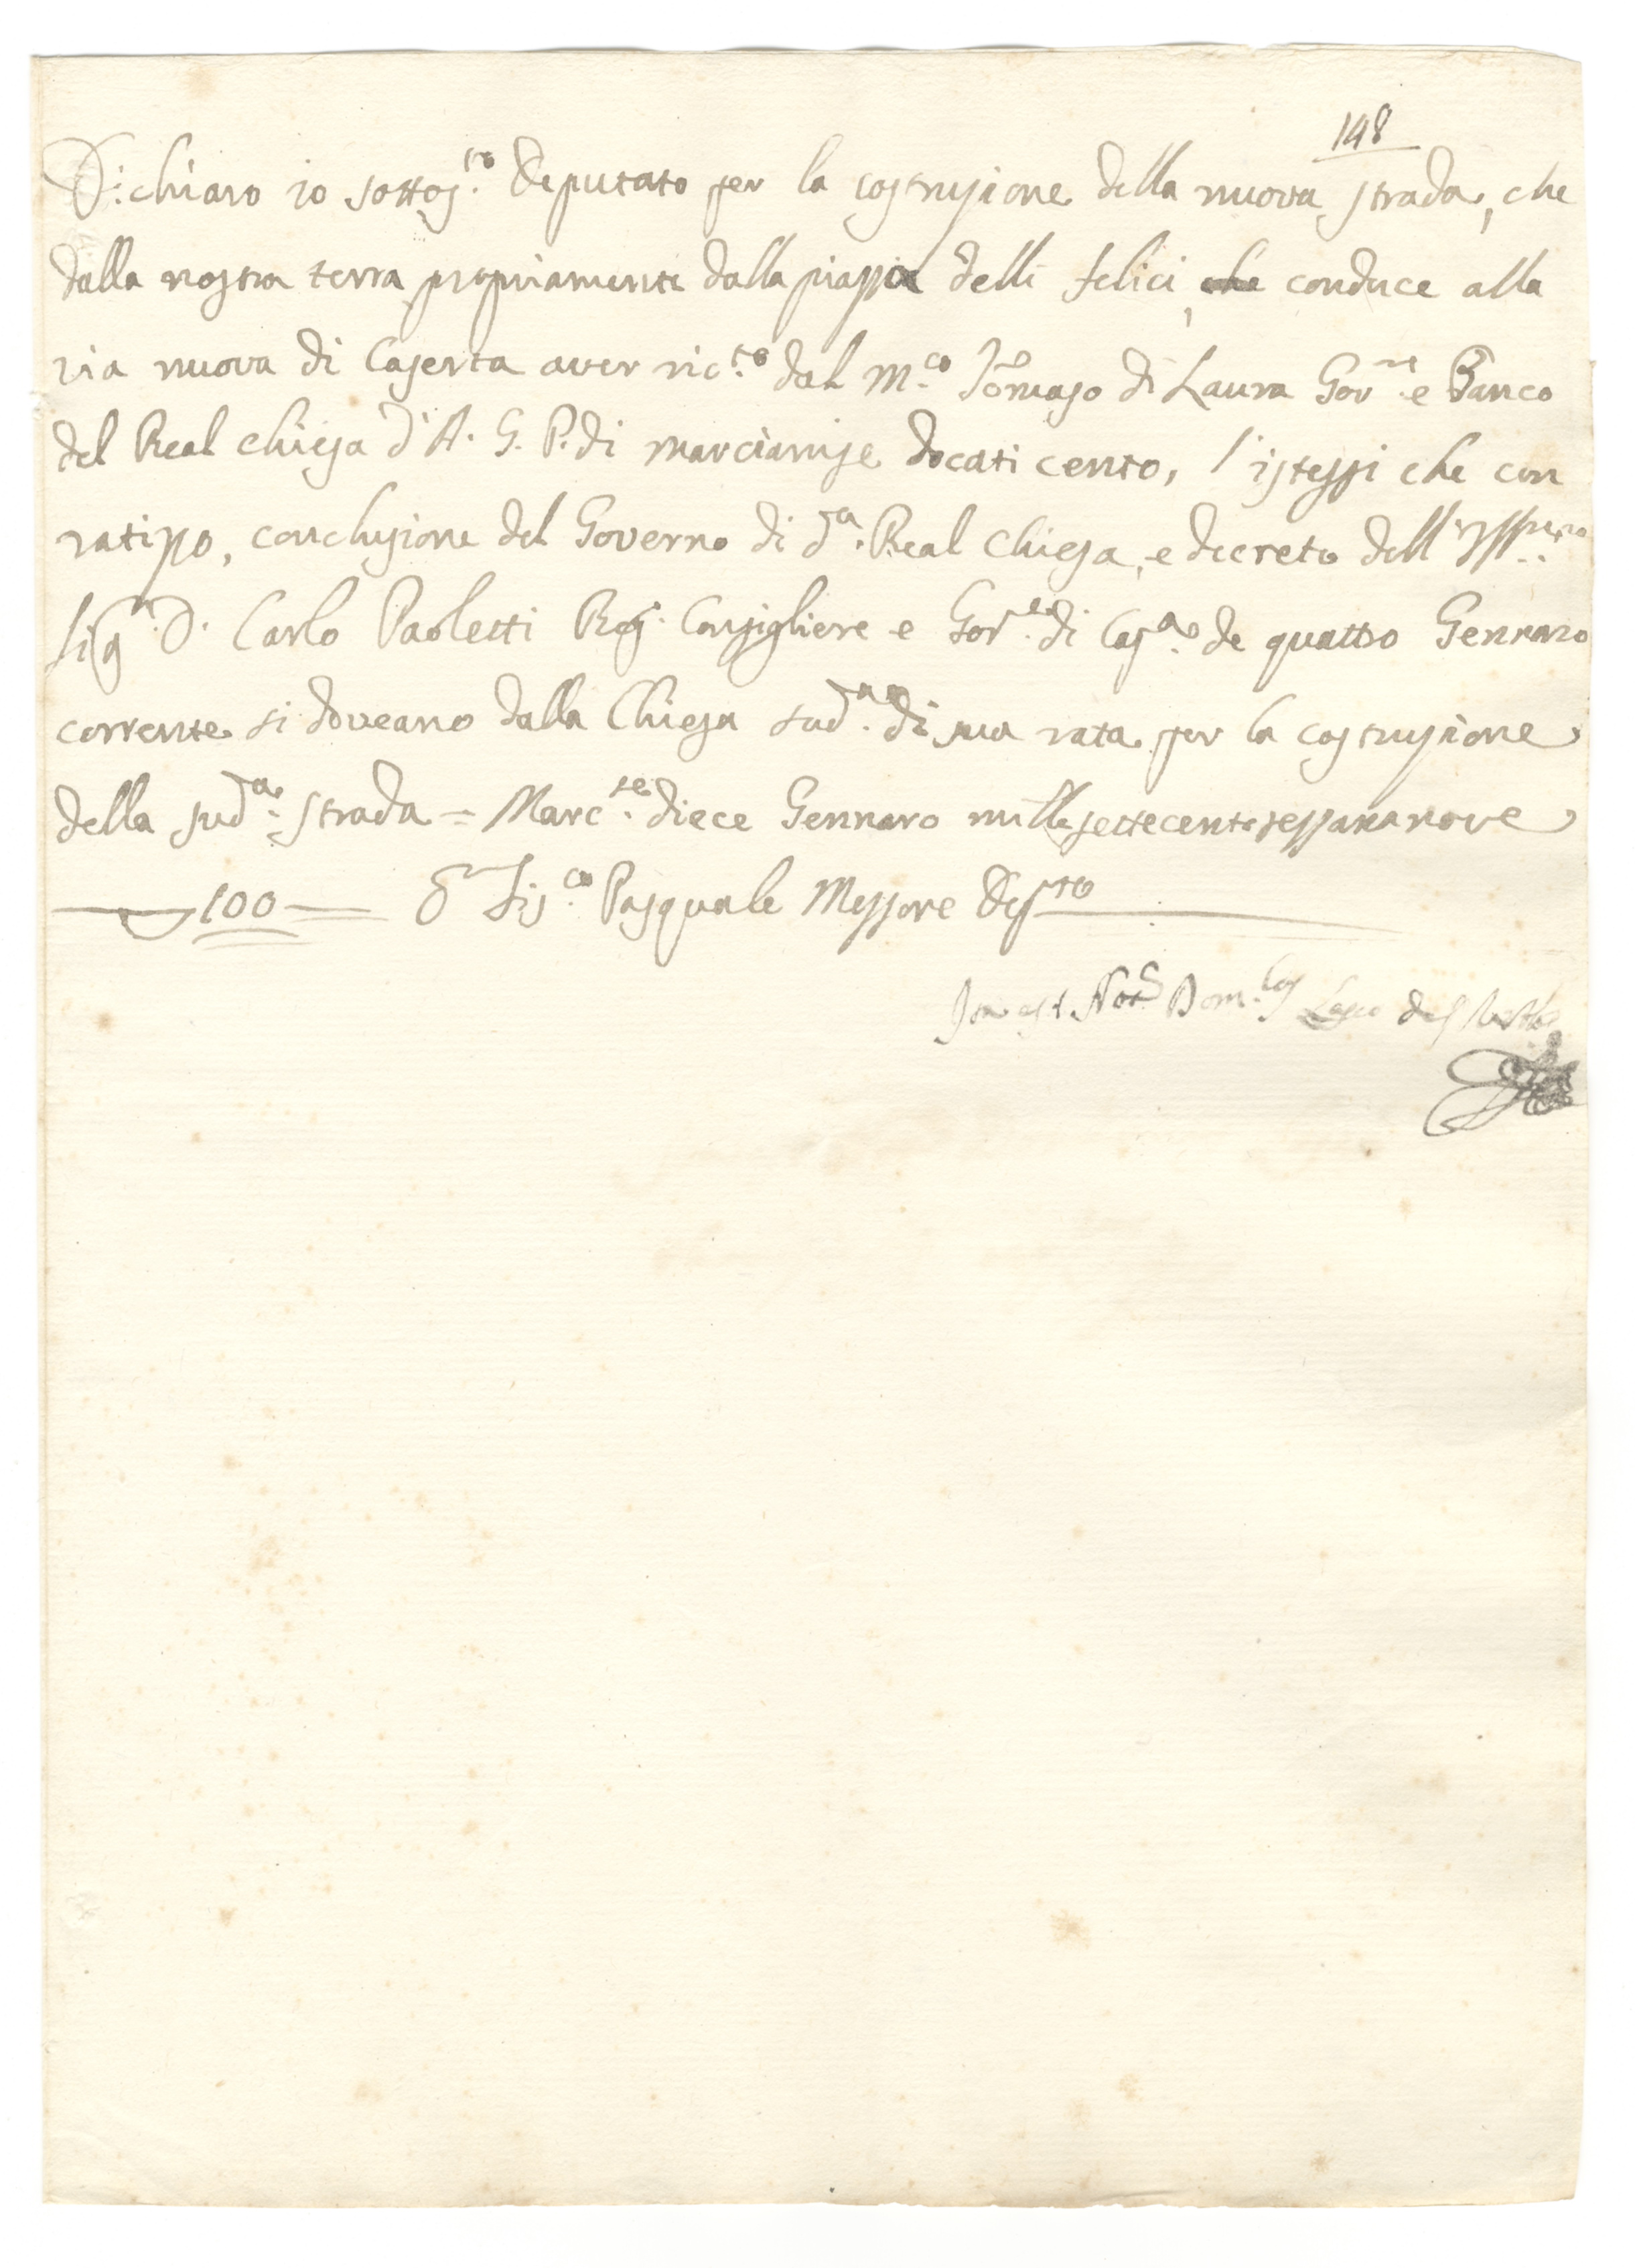 148
Dichiaro io sottos.to Deputato per la costruzione della nuova strada, che
dalla nostra terra propriamente dalla piazza delli felici, che conduce alla
via nuova di Caserta aver ric.to dal M.co Tomaso di Laura Gov.re e Banco
del Real Chiesa d'A. G. P. di Marcianise docati cento, l'istessi che con
ratizzo, conclusione del Governo di d.a Real Chiesa, e decreto dell'
Sig.r D. Carlo Paoletti Reg. Consigliere e Gov.re di Cas.a de quattro Gennaro
corrente si doveano dalla Chiesa sud.a di sua rata per la costruzione
della sud.a strada = Marc.se diece Gennaro mille settecento sessananove
100 Pasquale Messore Dep.to
Ita est Not.